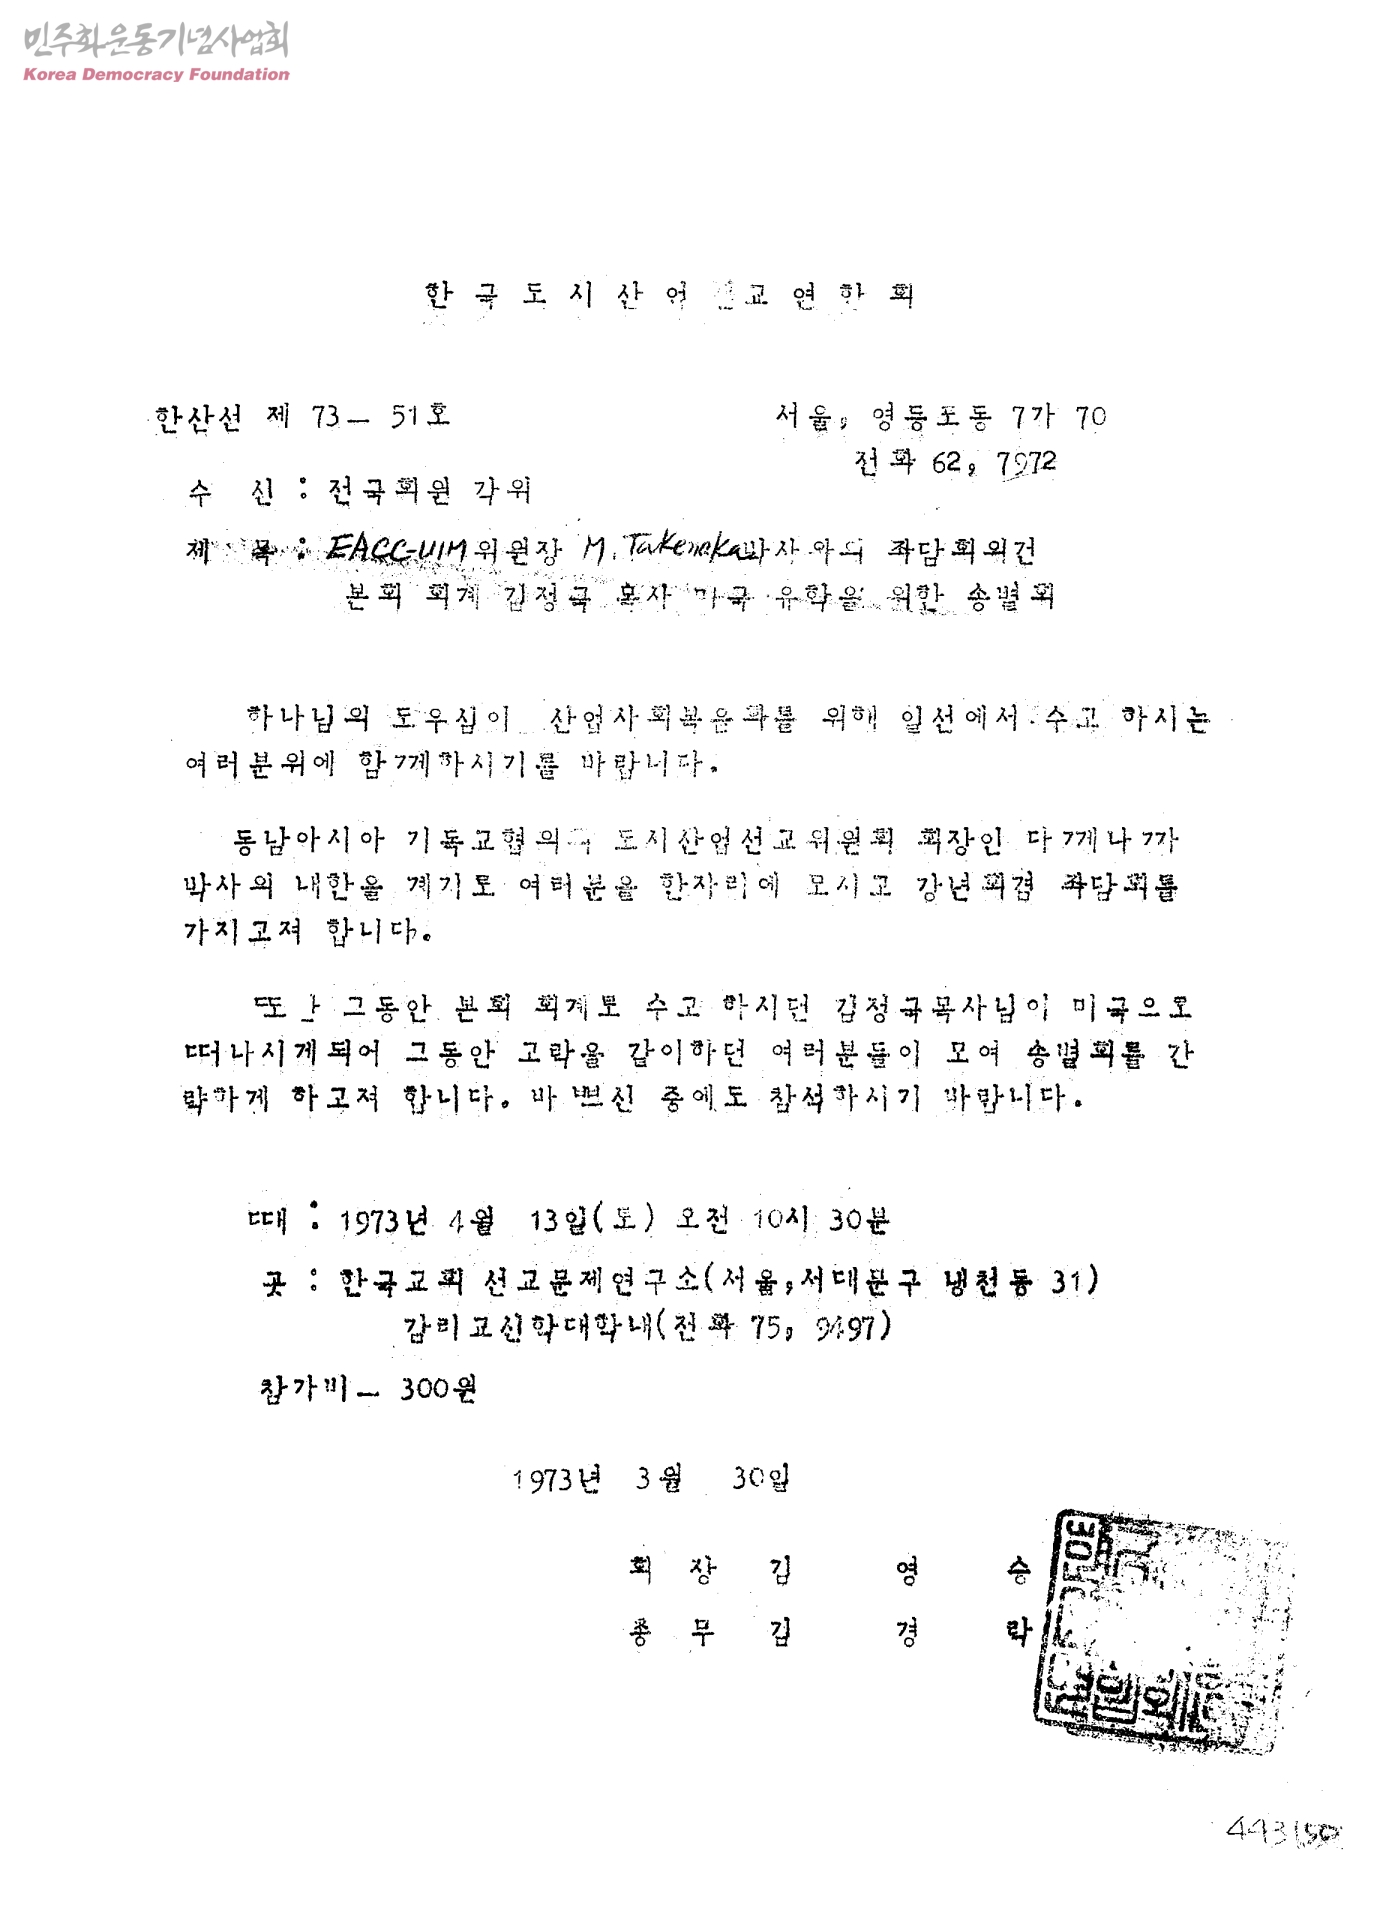 민주화운동기념사업회
Korea Democracy Foundation
한국도시산업선교연합회
한산선 제 73— 51호
서울, 영등포동 7가 70
전화 62, 7972
수 신 : 전국회원 각위
제 목 : EACC-UIM위원장 M. Takenaka박사와의 좌담회의건
본회 회계 김정국 목사 미국 유학을 위한 송별회
하나님의 도우심이 산업사회복음화를 위해 일선에서 수고 하시는
여러분위에 함께하시기를 바랍니다.
동남아시아 기독교협의회 도시산업선교위원회 회장인 다께나까
박사의 내한을 계기로 여러분을 한자리에 모시고 강연회겸 좌담회를
가지고져 합니다.
또한 그동안 본회 회계로 수고 하시던 김정국목사님이 미국으로
떠나시게되어 그동안 고락을 같이하던 여러분들이 모여 송별회를 간
략하게 하고져 합니다. 바쁘신 중에도 참석하시기 바랍니다.
때 : 1973년 4월 13일(토) 오전 10시 30분
곳 : 한국교회 선교문제연구소(서울,서대문구 냉천동 31)
감리교신학대학내(전화 75, 9497)
참가비— 300원
1973년 3월 30일
회 장 김 영 승
총 무 김 경 락
연합회
443(50